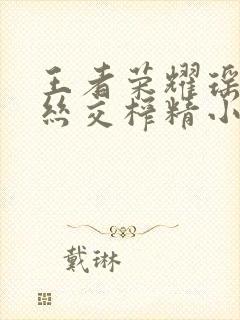 王者荣耀瑶
丝交榨精小
戴琳